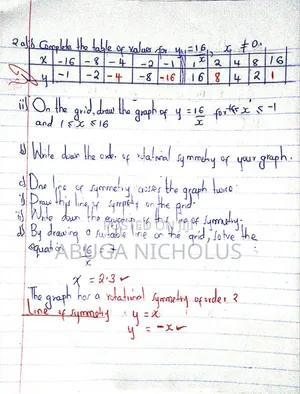 2 a)i) Complete the table of values for y = 16/x, x ≠ 0.
x -16 -8 -4 -2 -1 1 2 4 8 16
y -1 -2 -4 -8 -16 16 8 4 2 1
ii) On the grid, draw the graph of y = 16/x for -16 ≤ x ≤ -1
and 1 ≤ x ≤ 16
b) Write down the order of rotational symmetry of your graph.
c) One line of symmetry crosses the graph twice.
i) Draw this line of symmetry on the grid.
ii) Write down the equation of this line of symmetry.
d) By drawing a suitable line on the grid, solve the
equation 16/x = 7
POSTED ON
ABUGA NICHOLUS
x = 2.3 ✓
The graph has a rotational symmetry of order 2
Line of symmetry y = x
y = -x ✓